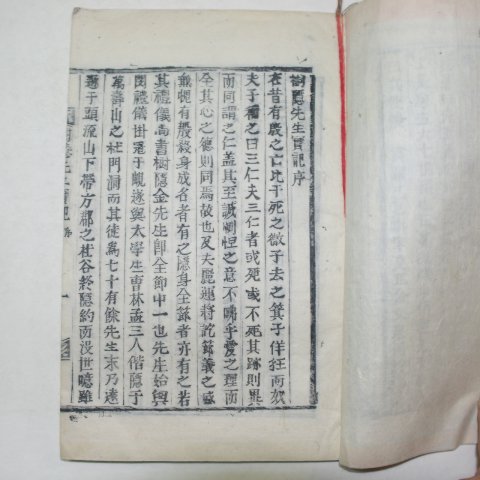 樹隱先生實記序
在昔有殷之亡比干死之微子去之箕子佯狂而奴
夫子稱之曰三仁夫三仁者或死或不死其跡則異
而同謂之仁盖其至誠惻怛之意不咈乎愛之理而
全其心之德則同焉故也及夫麗運將訖節義之盛
無媿有殷殺身成名者有之隱身全節者亦有之若
其禮儀尙書樹隱金先生卽全節中一也先生始與
閔禮儀掛冠于峴遂與太學生曺林孟三人偕隱于
萬壽山之杜門洞而其徒爲七十有餘先生末乃遠
遯于頭流山下帶方郡之杜谷終隱約而沒世噫雖